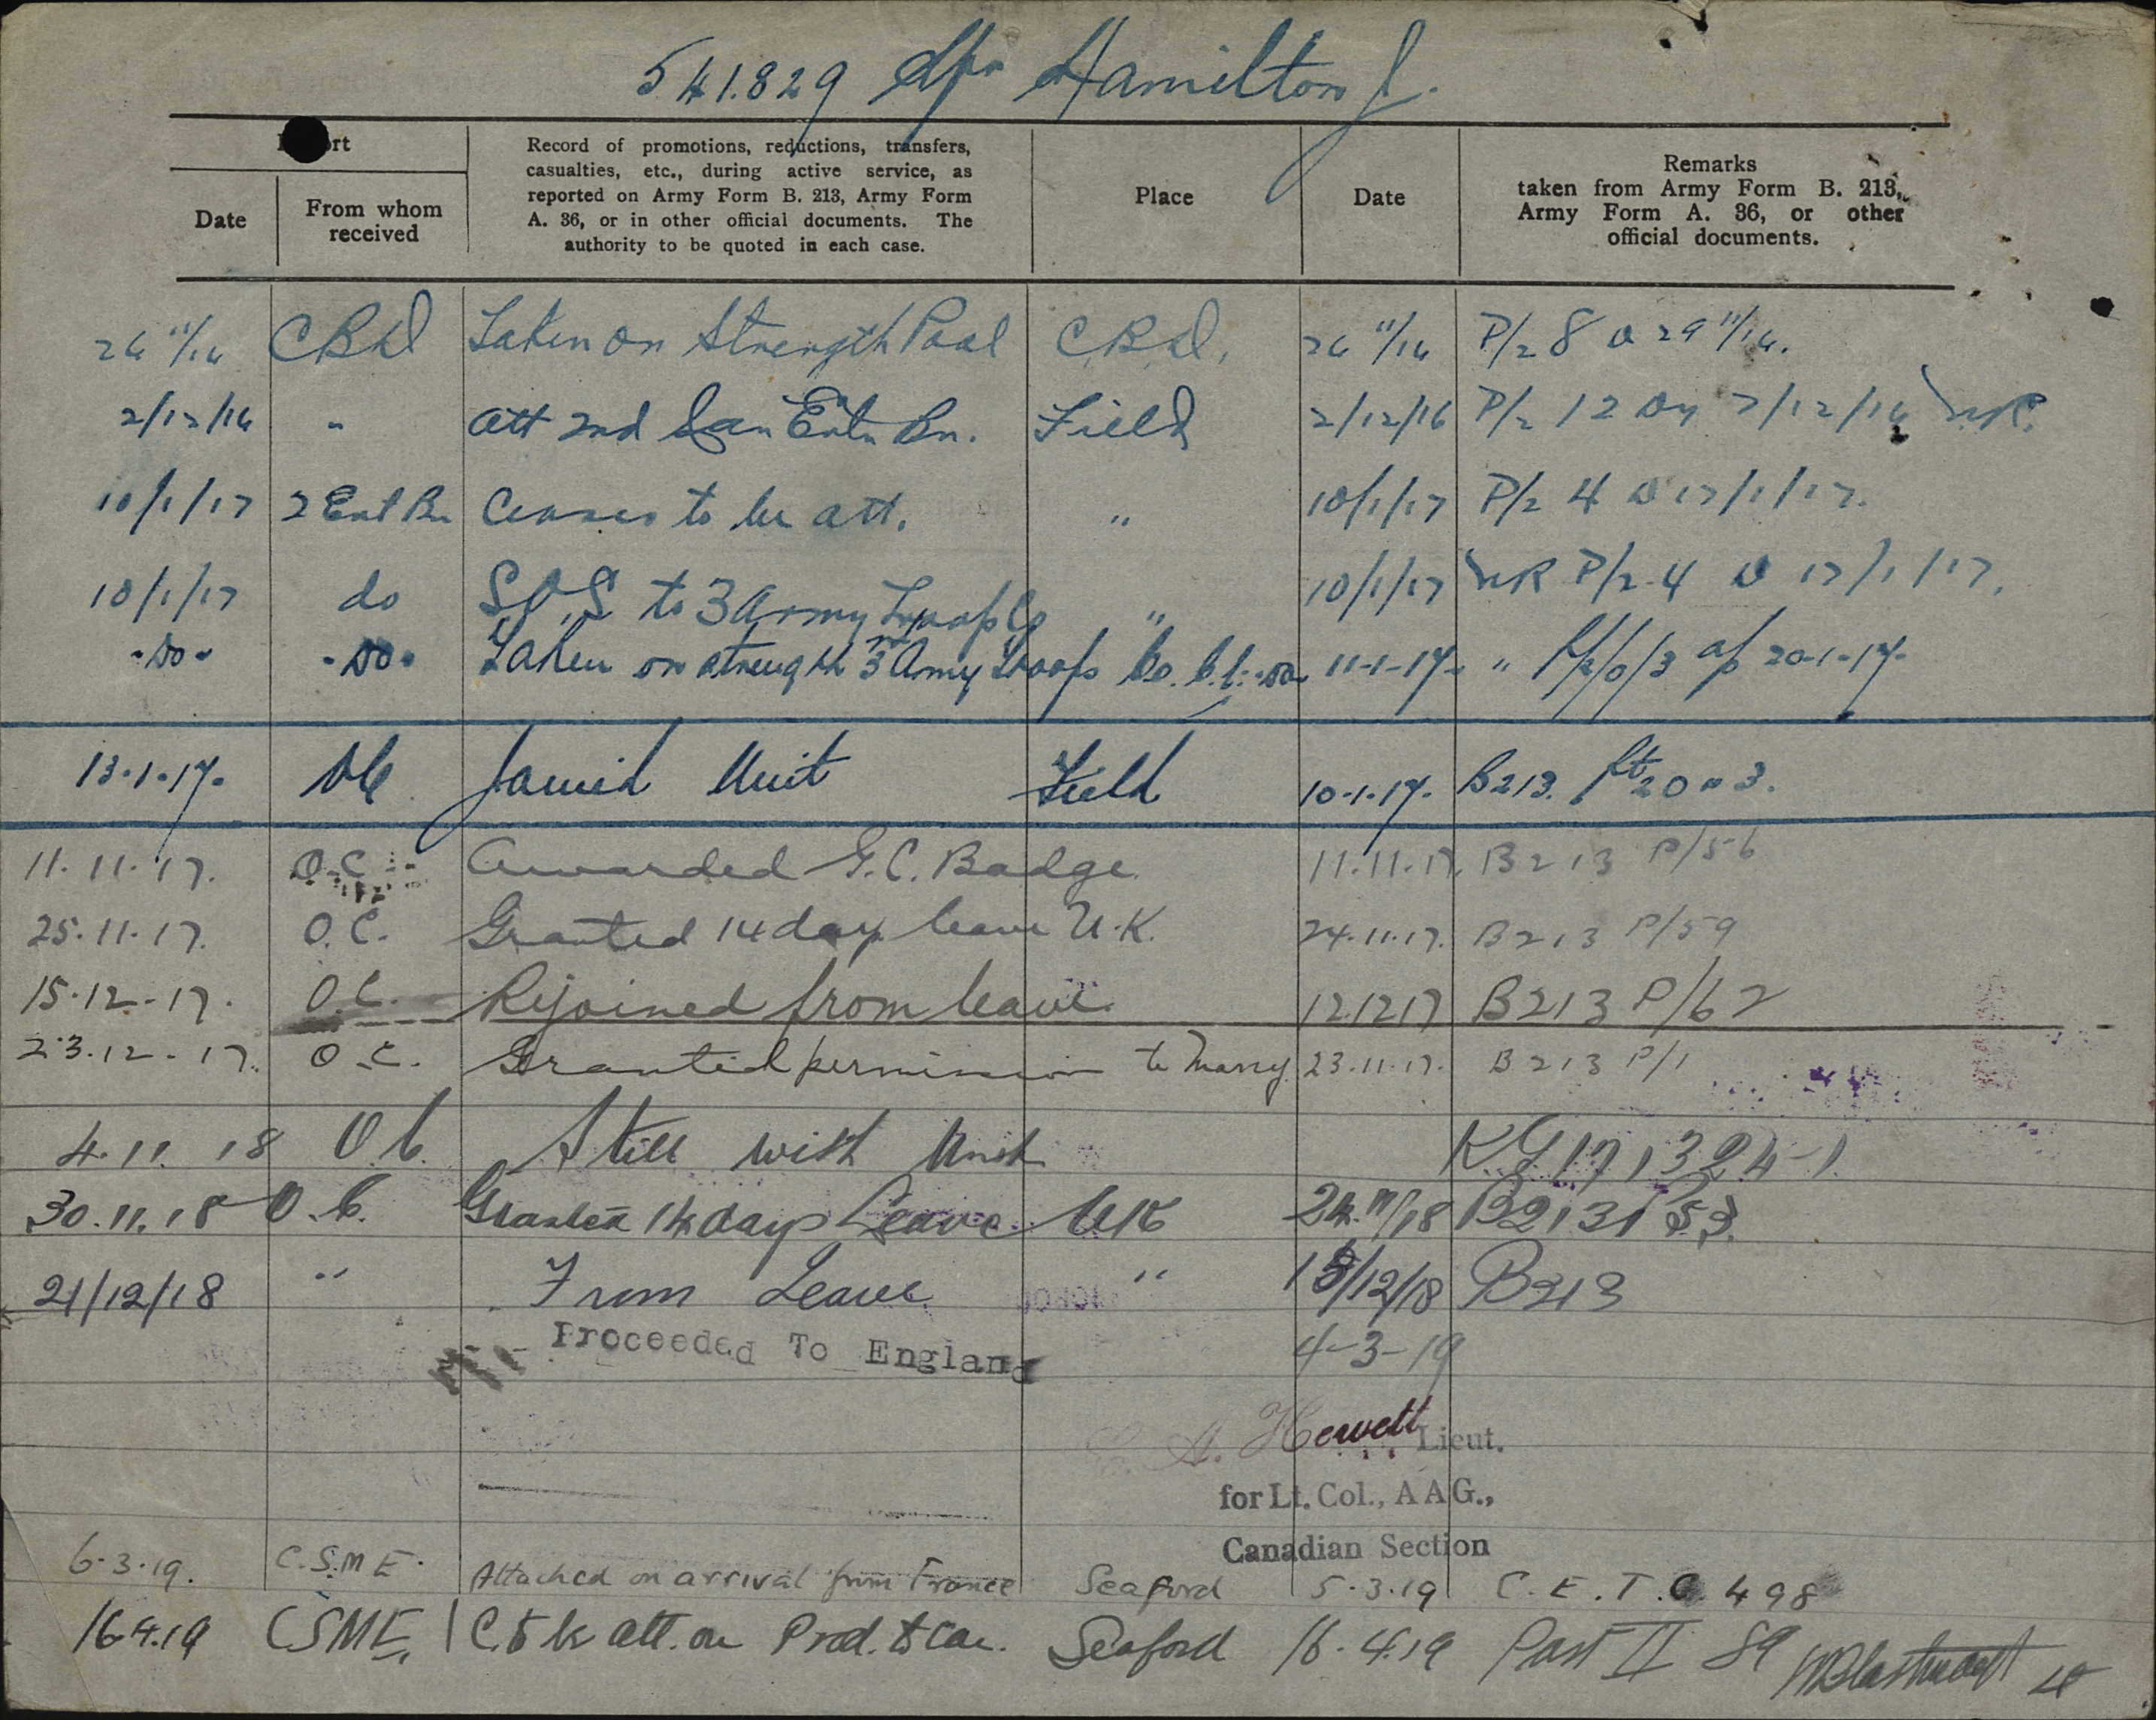 541.829 Spr Hamilton J.
Report
Date
From whom received
Record of promotions, reductions, transfers, casualties, etc., during active service, as reported on Army Form B. 213, Army Form A. 36, or in other official documents. The authority to be quoted in each case.
Place
Date
Remarks taken from Army Form B. 213, Army Form A. 36, or other official documents.
26 11/16 CBD Taken on Strength Pool C.B.D. 26 11/16 P/2 8 D 29 11/16.
2/12/16 " att 2nd Can Entr Bn. Field 2/12/16 P/2 12 D 7/12/16
10/1/17 2 Ent Bn Ceases to be att. " 10/1/17 P/2 4 D 17/1/17.
10/1/17 do S.O.S to 3 Army Troops Co " 10/1/17 P/2 4 D 17/1/17.
-Do- -Do- Taken on strength 3rd Army Troops Co. C.E. -Do- 11-1-17- " 20-1-17-
13-1-17- OC Joined Unit Field 10-1-17. B213. Pt 2 O 3.
11.11.17. O.C Awarded G.C. Badge 11.11.17. B213 P/56
25.11.17. O.C. Granted 14 days leave U.K. 24.11.17. B213 P/59
15.12.17. O.C. Rejoined from leave. 12.12.17 B213 P/62
23.12.17. O.C. Granted permission to Marry 23.11.17. B213 P/1
4.11.18 O.C. Still with Unit
30.11.18 O.C. Granted 14 days Leave UK 24.11/18 B213 53.
21/12/18 " From Leave " 13/12/18 B213
Proceeded To England 4-3-19
Hewett Lieut.
for Lt. Col., AAG.,
Canadian Section
6.3.19. C.S.M.E. Attached on arrival from France Seaford 5.3.19 C.E.T.C. 498
16.4.19 CSME. C. to be att. on Prod. to Can. Seaford 16.4.19 Part II 89